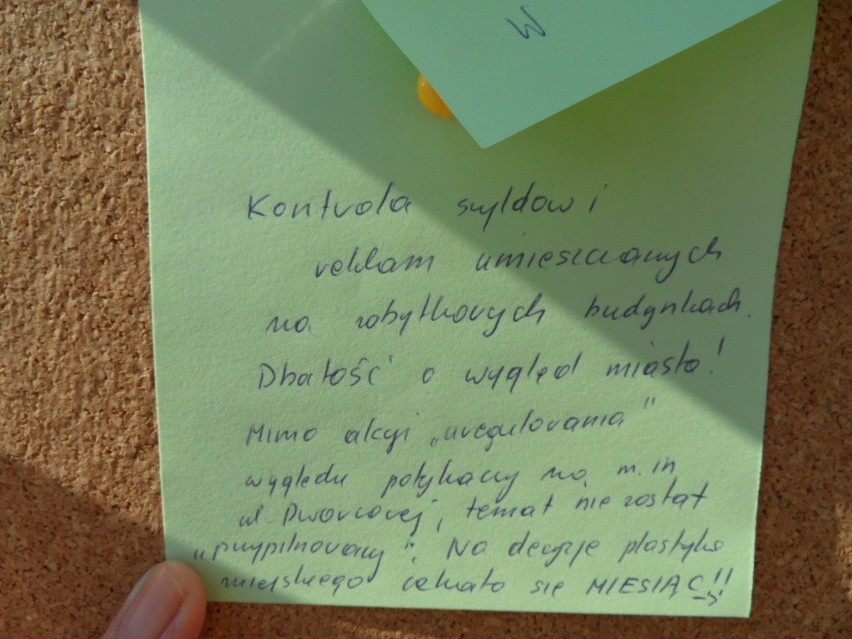 W
Kontrola szyldów i
reklam umieszczanych
na zabytkowych budynkach.
Dbałość o wygląd miasta!
Mimo akcji „uregulowania”
wyglądu potykaczy na m.in
ul. Dworcowej, temat nie został
„przypilnowany”. Na decyzje plastyka
miejskiego czekało się MIESIĄC!!